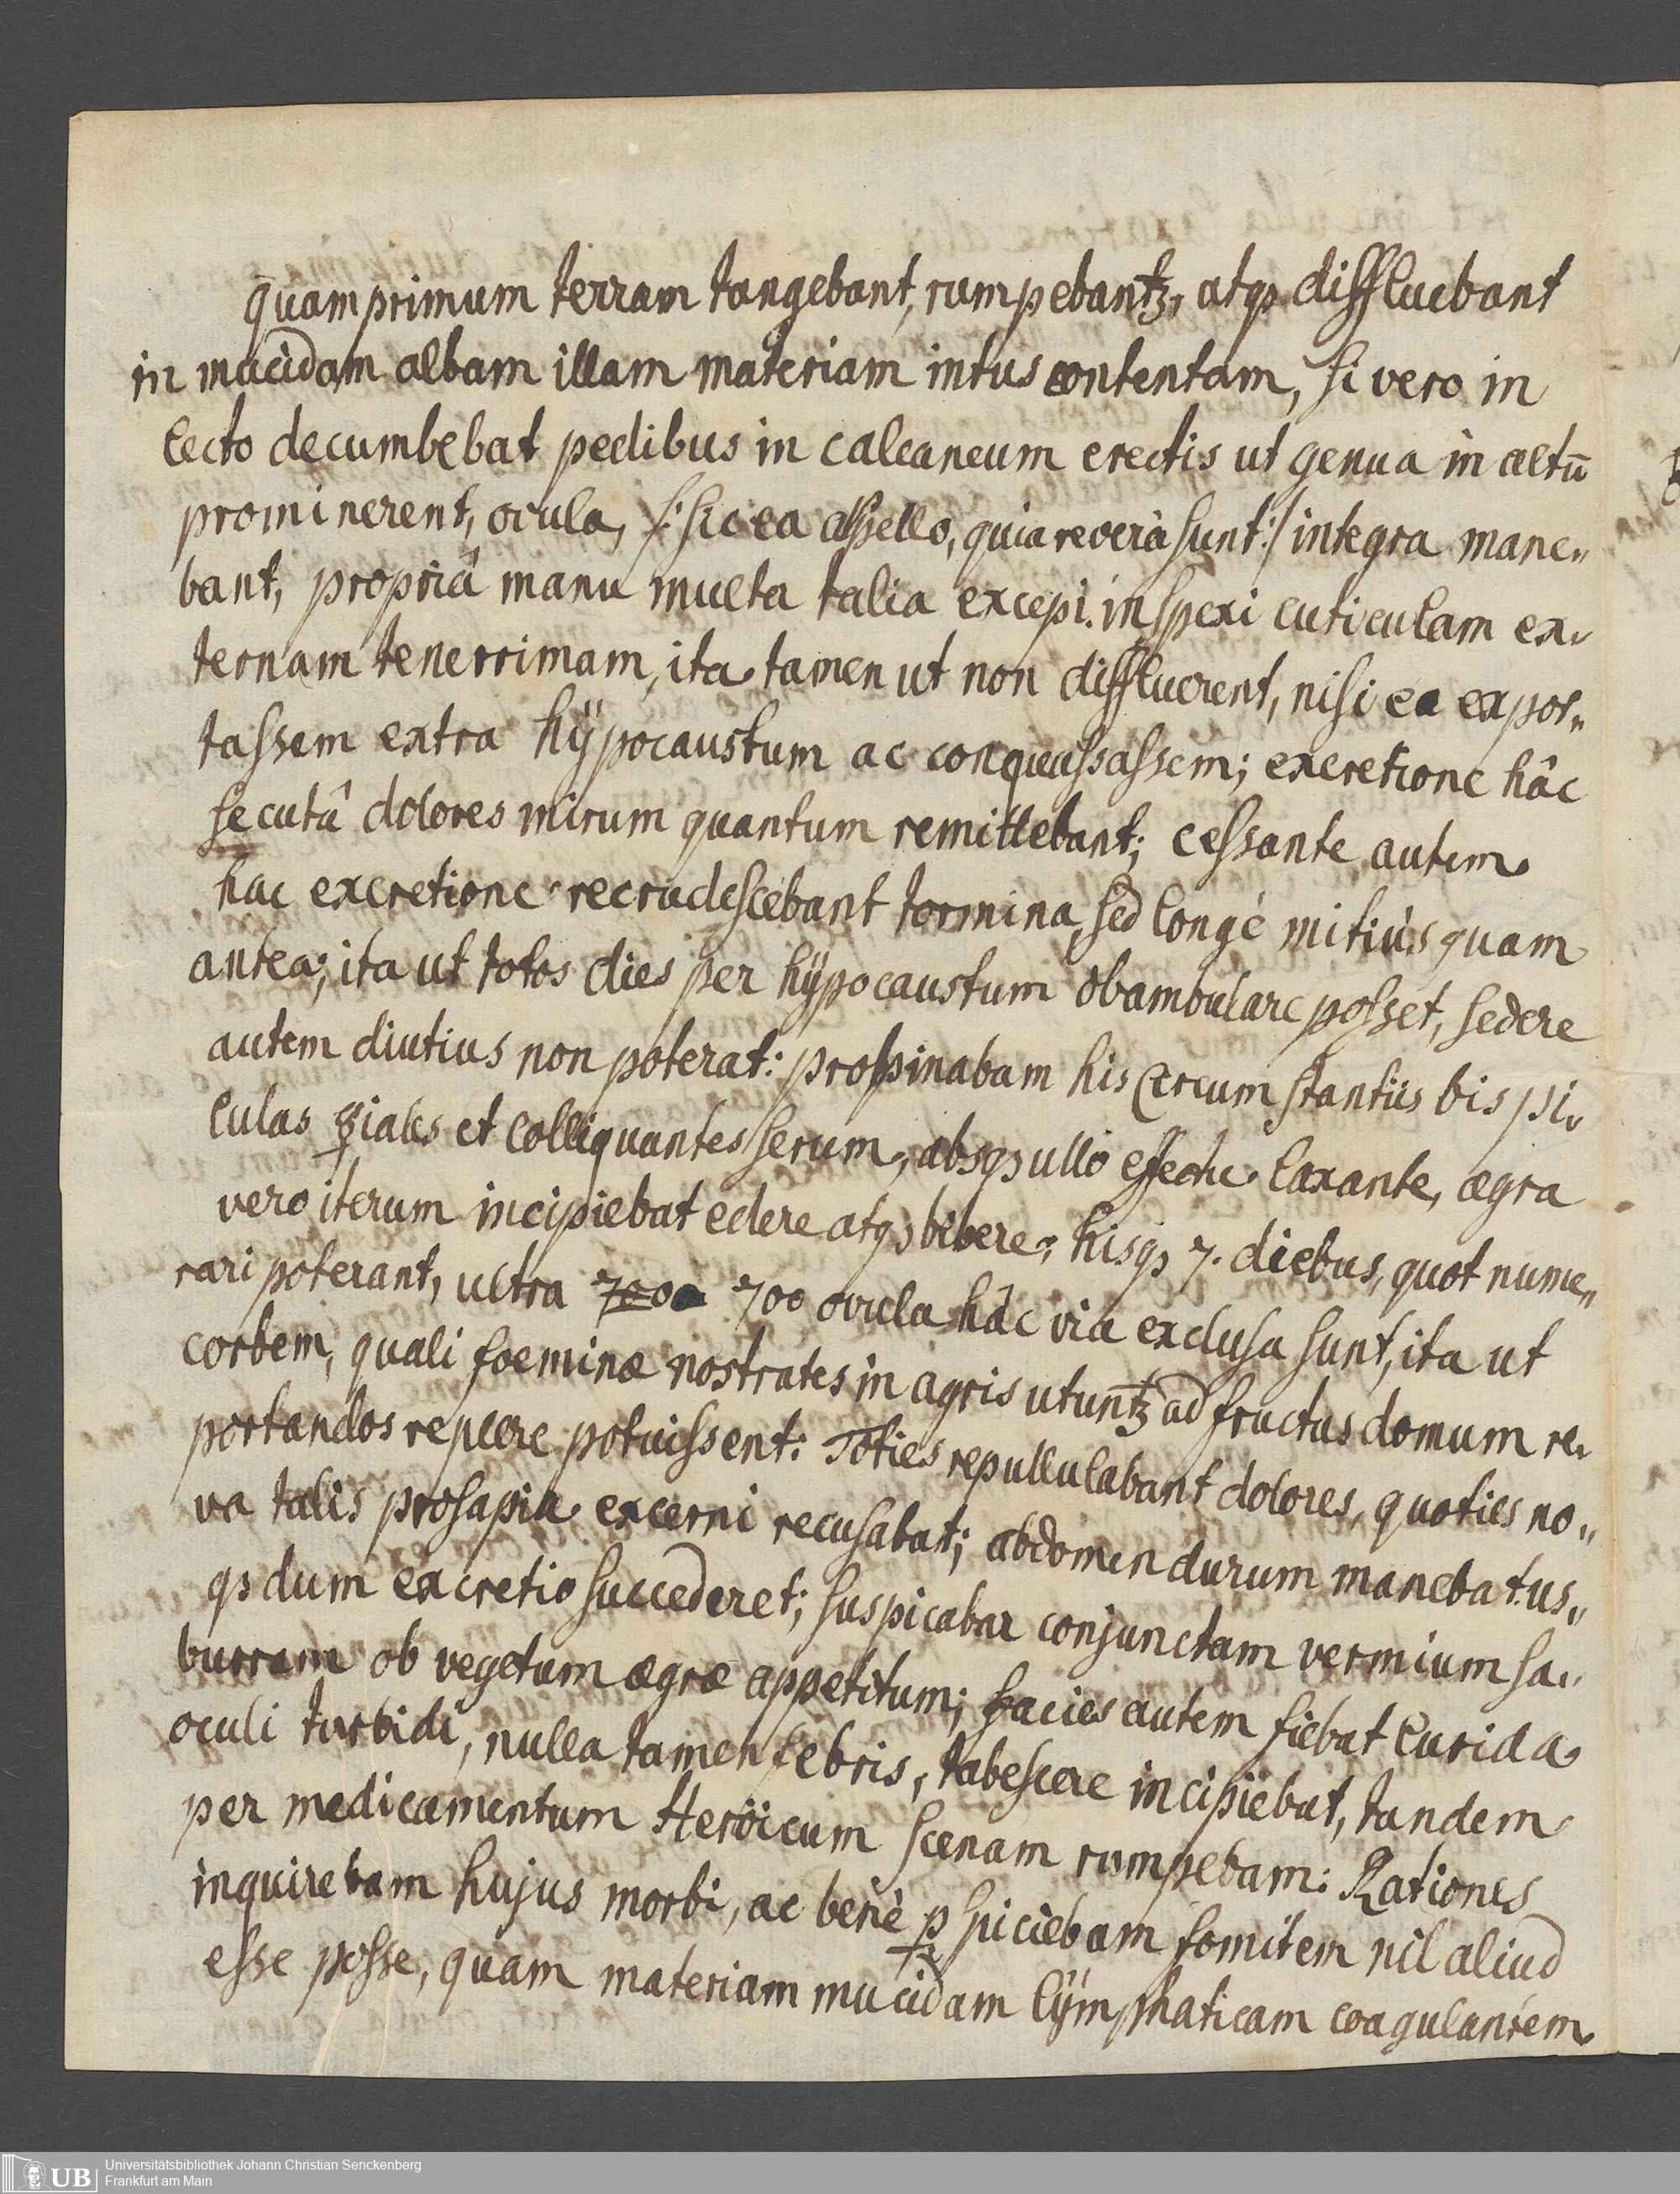 quamprimum terram tangebant, rumpebantꝫ, atqꝫ diffluebant
in mucidam albam illam materiam intus contentam, si vero in
lecto decumbebat pedibus in calcaneum erectis ut genua in altū
prominerent, ovula, /: sic ea appello, quia reverà sunt :/ integra mane„
bant, propriâ manu multa talia excepi. inspexi cuticulam ex„
ternam tenerrimam, ita tamen ut non diffluerent, nisi ea expor„
tassem extra hÿpocaustum ac conquassassem; excretione hâc
secutâ dolores mirum quantum remittebant; cessante autem
hac excretione recrudescebant tormina, sed longè mitiùs quam
antea; ita ut totos dies per hÿpocaustum obambulare posset, sedere
autem diutius non poterat: propinabam his circumstantiis bis pi„
lulas ☿iales et colliquantes serum, absqꝫ ullo effectu laxante, ægra
vero iterum incipiebat edere atqꝫ bibere; hisqꝫ 7. diebus, quot nume„
rari poterant, ultra 7000 700 ovula hâc via exclusa sunt, ita ut
corbem, quali foeminæ nostrates in agris utuntꝫ ad fructus domum re„
portandos replere potuissent: Toties repullulabant dolores, quoties no„
va talis prosapia excerni recusabat; abdomen durum manebat us„
qꝫ dum excretio succederet; suspicabar conjunctam vermium sa„
burram ob vegetum ægræ appetitum; facies autem fiebat lurida
oculi turbidi, nulla tamen febris, tabescere incipiebat, tandem
per medicamentum Heroicum scenam rumpebam: Rationes
inquirebam hujus morbi, ac benè ꝑspiciebam fomitem nil aliud
esse posse, quam materiam mucidam lÿmphaticam coagulantem
Universitätsbibliothek Johann Christian Senckenberg
Frankfurt am Main
UB